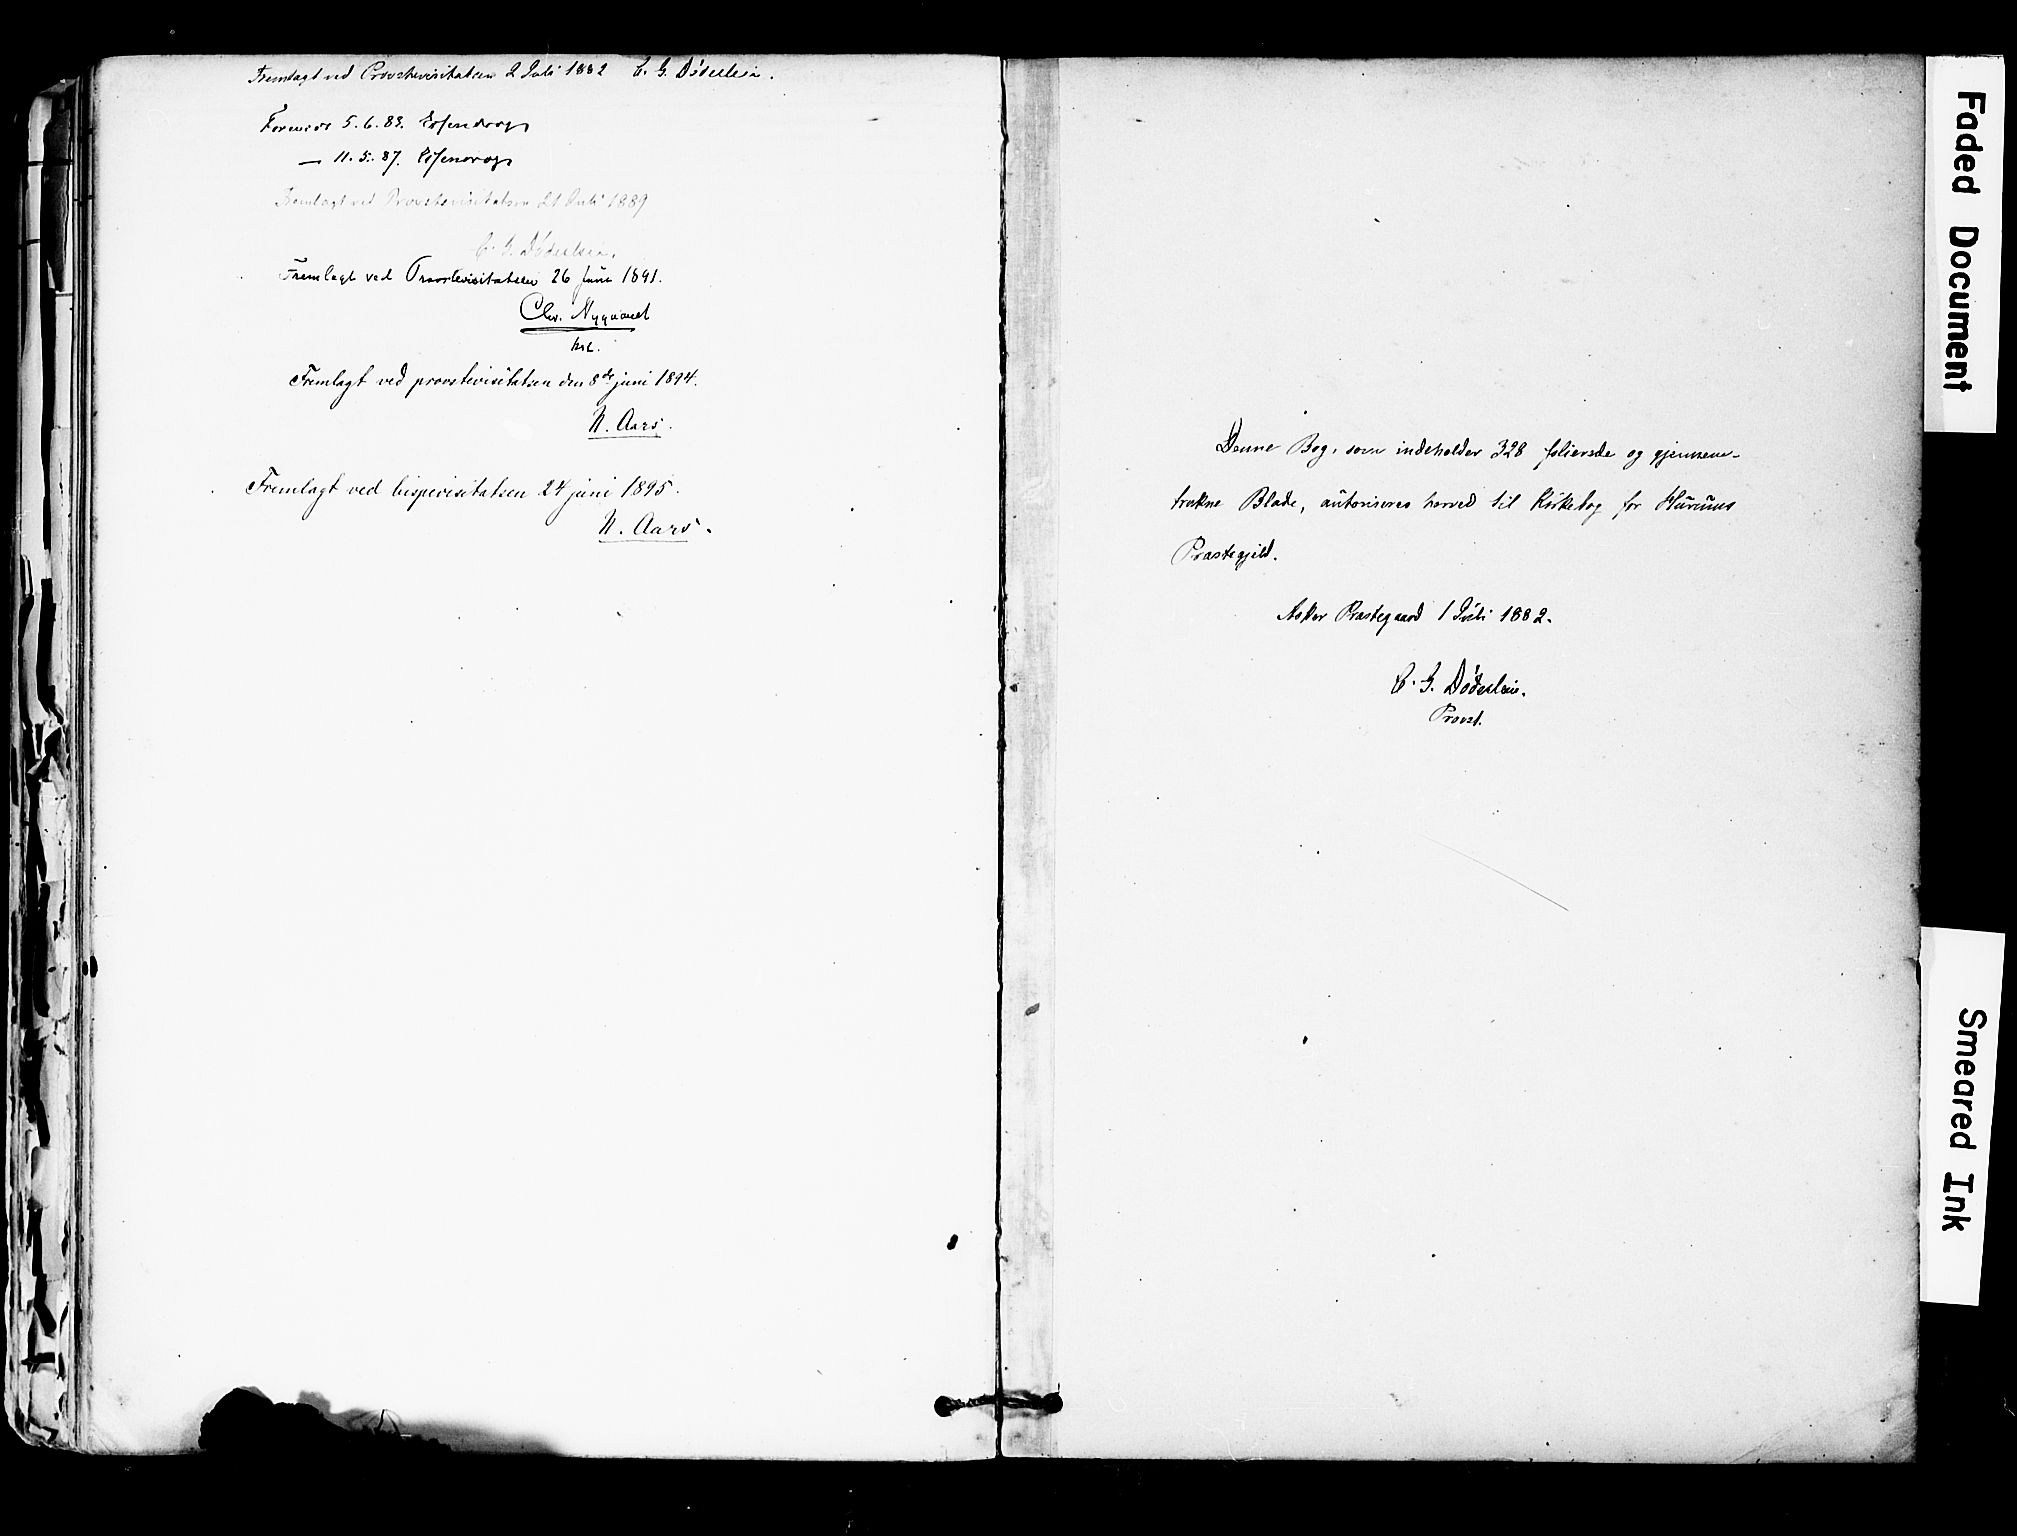 Fremlagt ved Provstevisitatsen 2 Juli 1882 C. G. Döderlein.
Forevist 5.6.83. Essendrop
— 11.5.87. Essendrop
Fremlagt ved Provstevisitatsen 21 Juli 1889
C. G. Döderlein.
Fremlagt ved Provstevisitatsen 26 Juni 1891.
Chr. Nyquist
kst.
Fremlagt ved provstevisitatsen den 8de juni 1894.
N. Aars.
Fremlagt ved bispevisitatsen 24 juni 1895.
N. Aars.
Denne Bog, som indeholder 328 folierede og gjennem-
trukne Blade, autoriseres herved til Kirkebog for Hurums
Præstegjeld.
Asker Præstegaard 1 Juli 1882.
C. G. Döderlein.
Provst.
Faded Document
Smeared Ink